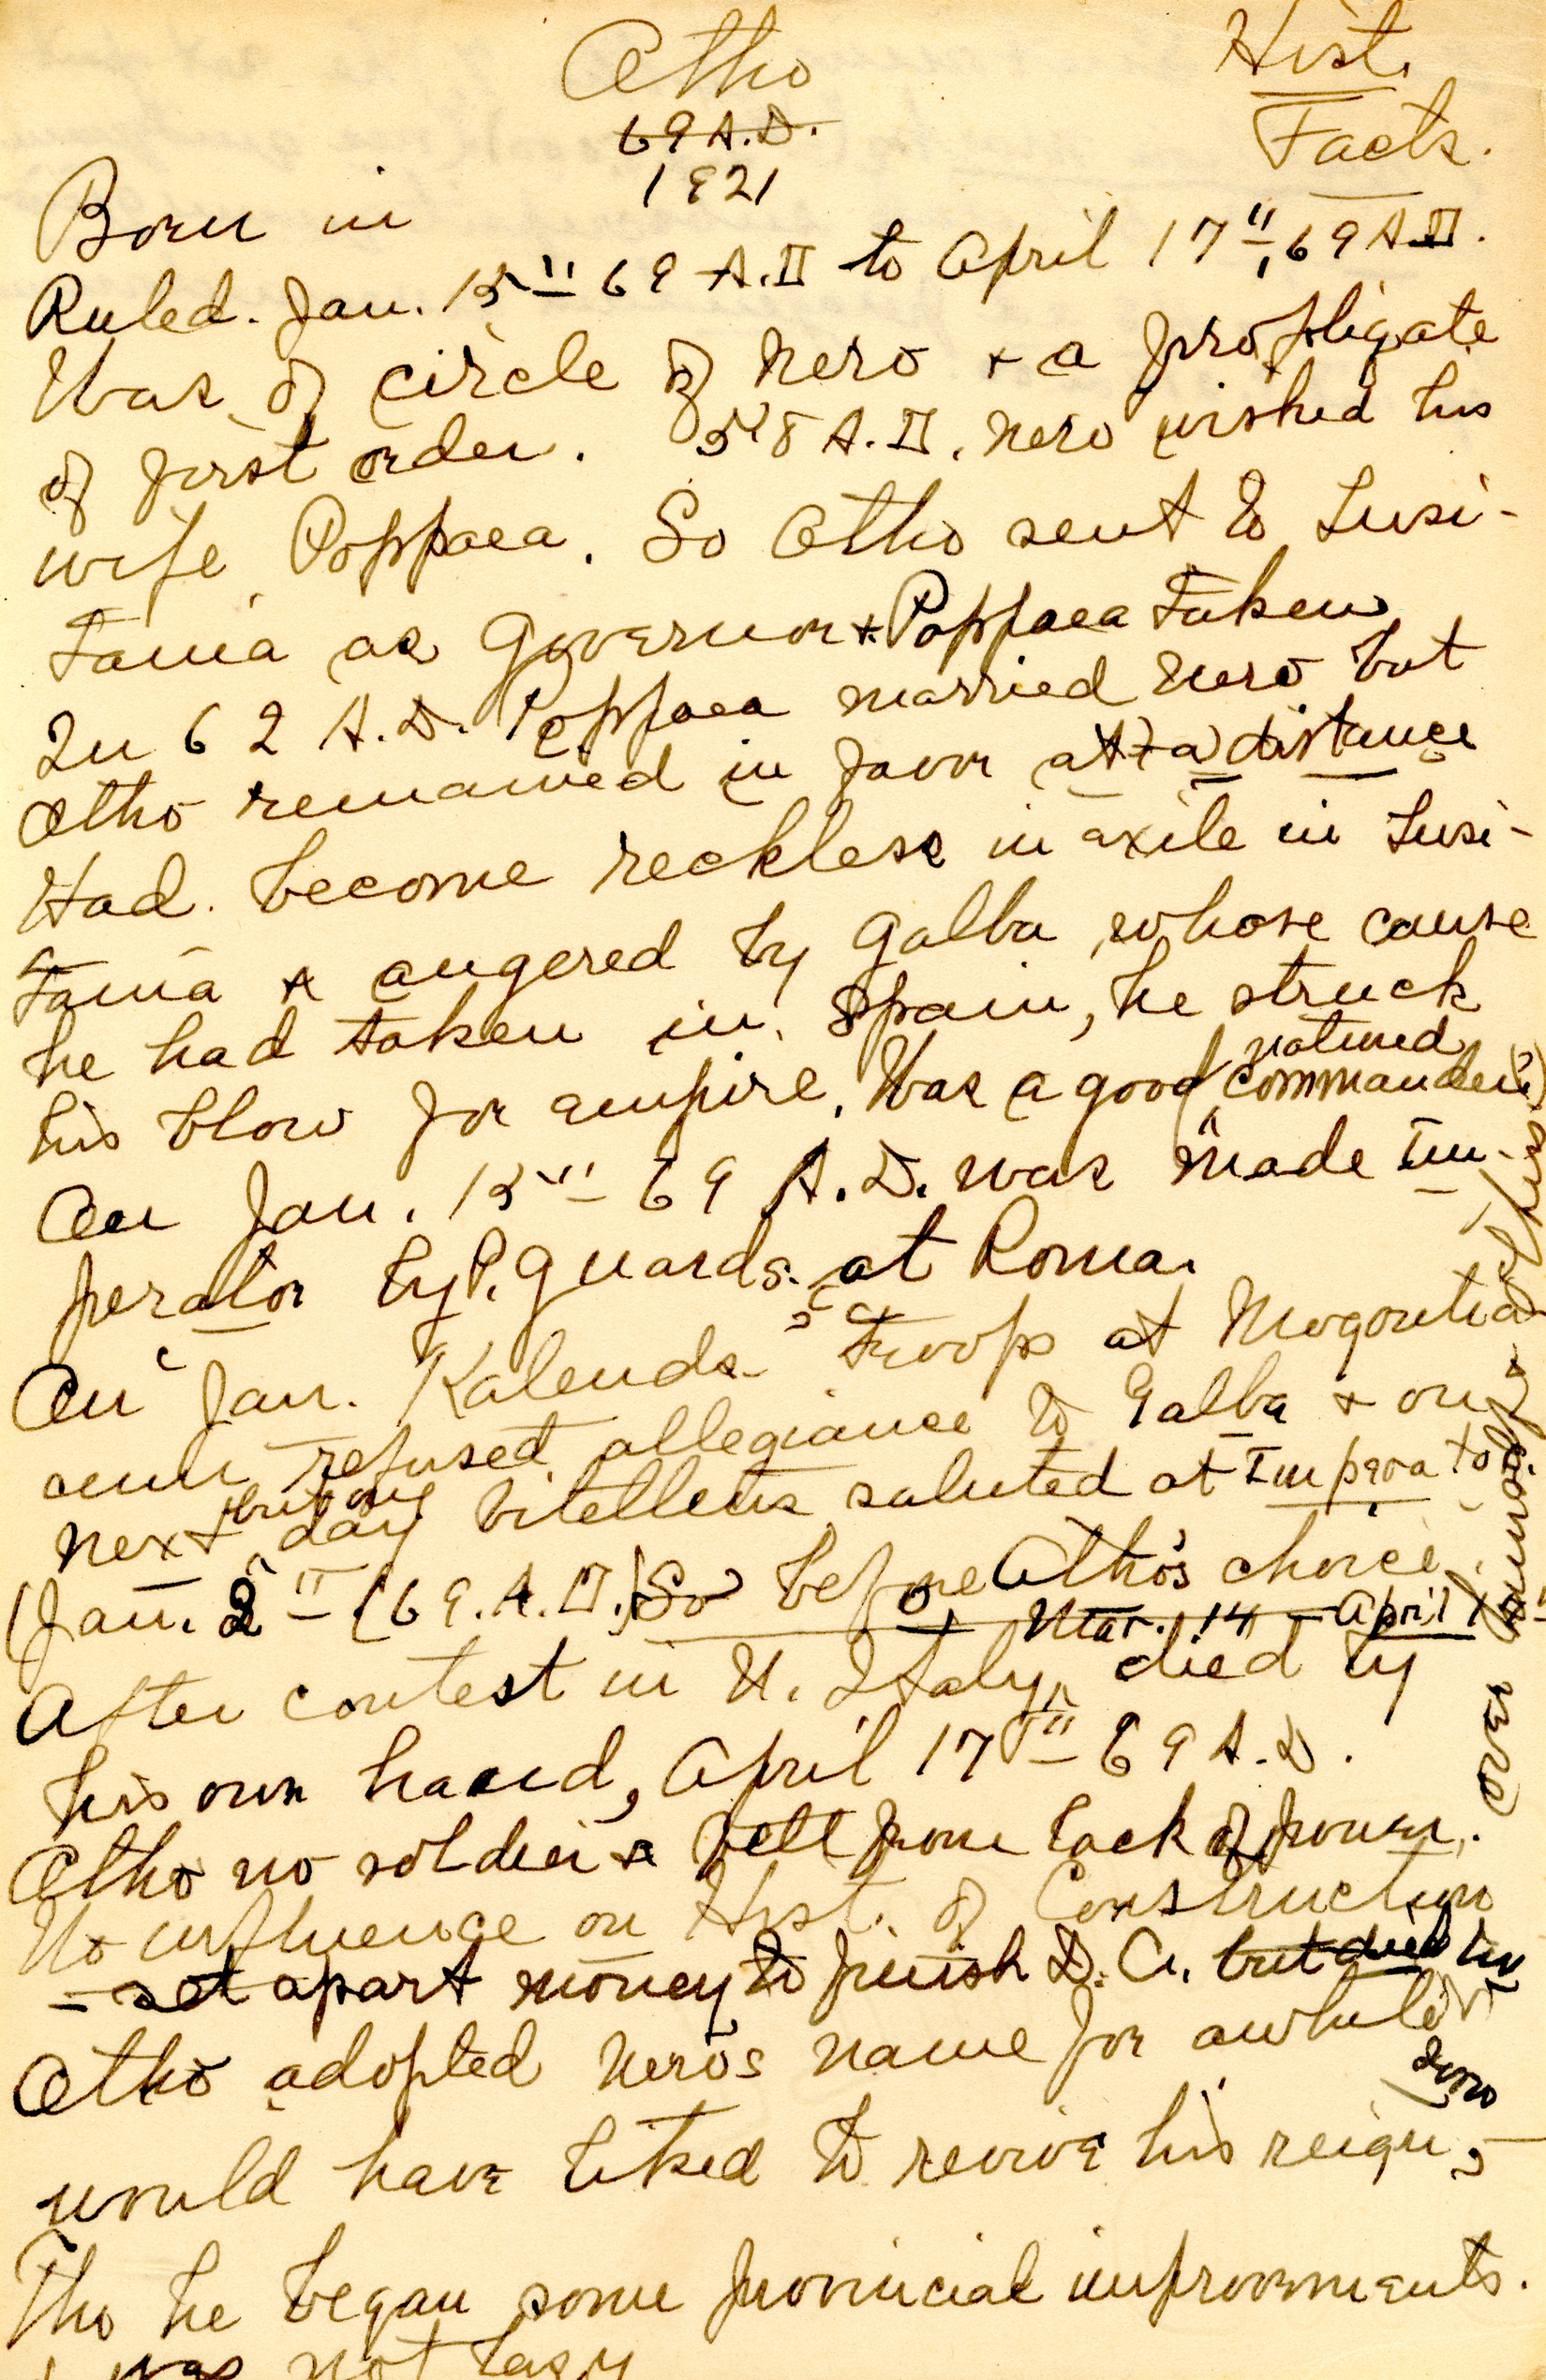 Otho
Hist.
Facts.
69 A.D.
1921
Born in
Ruled. Jan. 15" 69 A.D to April 17", 69 A.D.
Was of circle of Nero + a profligate
of first order. 58 A.D. Nero wished his
wife Poppaea. So Otho sent to Lusi-
tania as Governor + Poppaea taken
In 62 A.D. Poppaea married Nero but
Otho remained in favor at a distance
Had become reckless in exile in Lusi-
tania & angered by Galba whose cause
he had taken in Spain, he struck
his blow for empire. Was a good natured commander
On Jan. 15" 69 A.D. was made Im-
perator by P. guards at Roma.
On Jan. Kalends troops at Mogontia
cum refused allegiance to Galba + on
next day Vitellius saluted at Imperator
(Jan. 2" (69. A.D.) So before Otho's choice
After contest in N. Italy, Mar. 14 - April died by
his own hand, April 17" 69 A.D.
Otho no soldier & fell from lack of power.
No influence on Hist. of Construction
- set apart money to finish D. A. but died
Otho adopted Nero's name for awhile
would have liked to revive his reign,
Tho he began some provincial improvements.
was not lazy